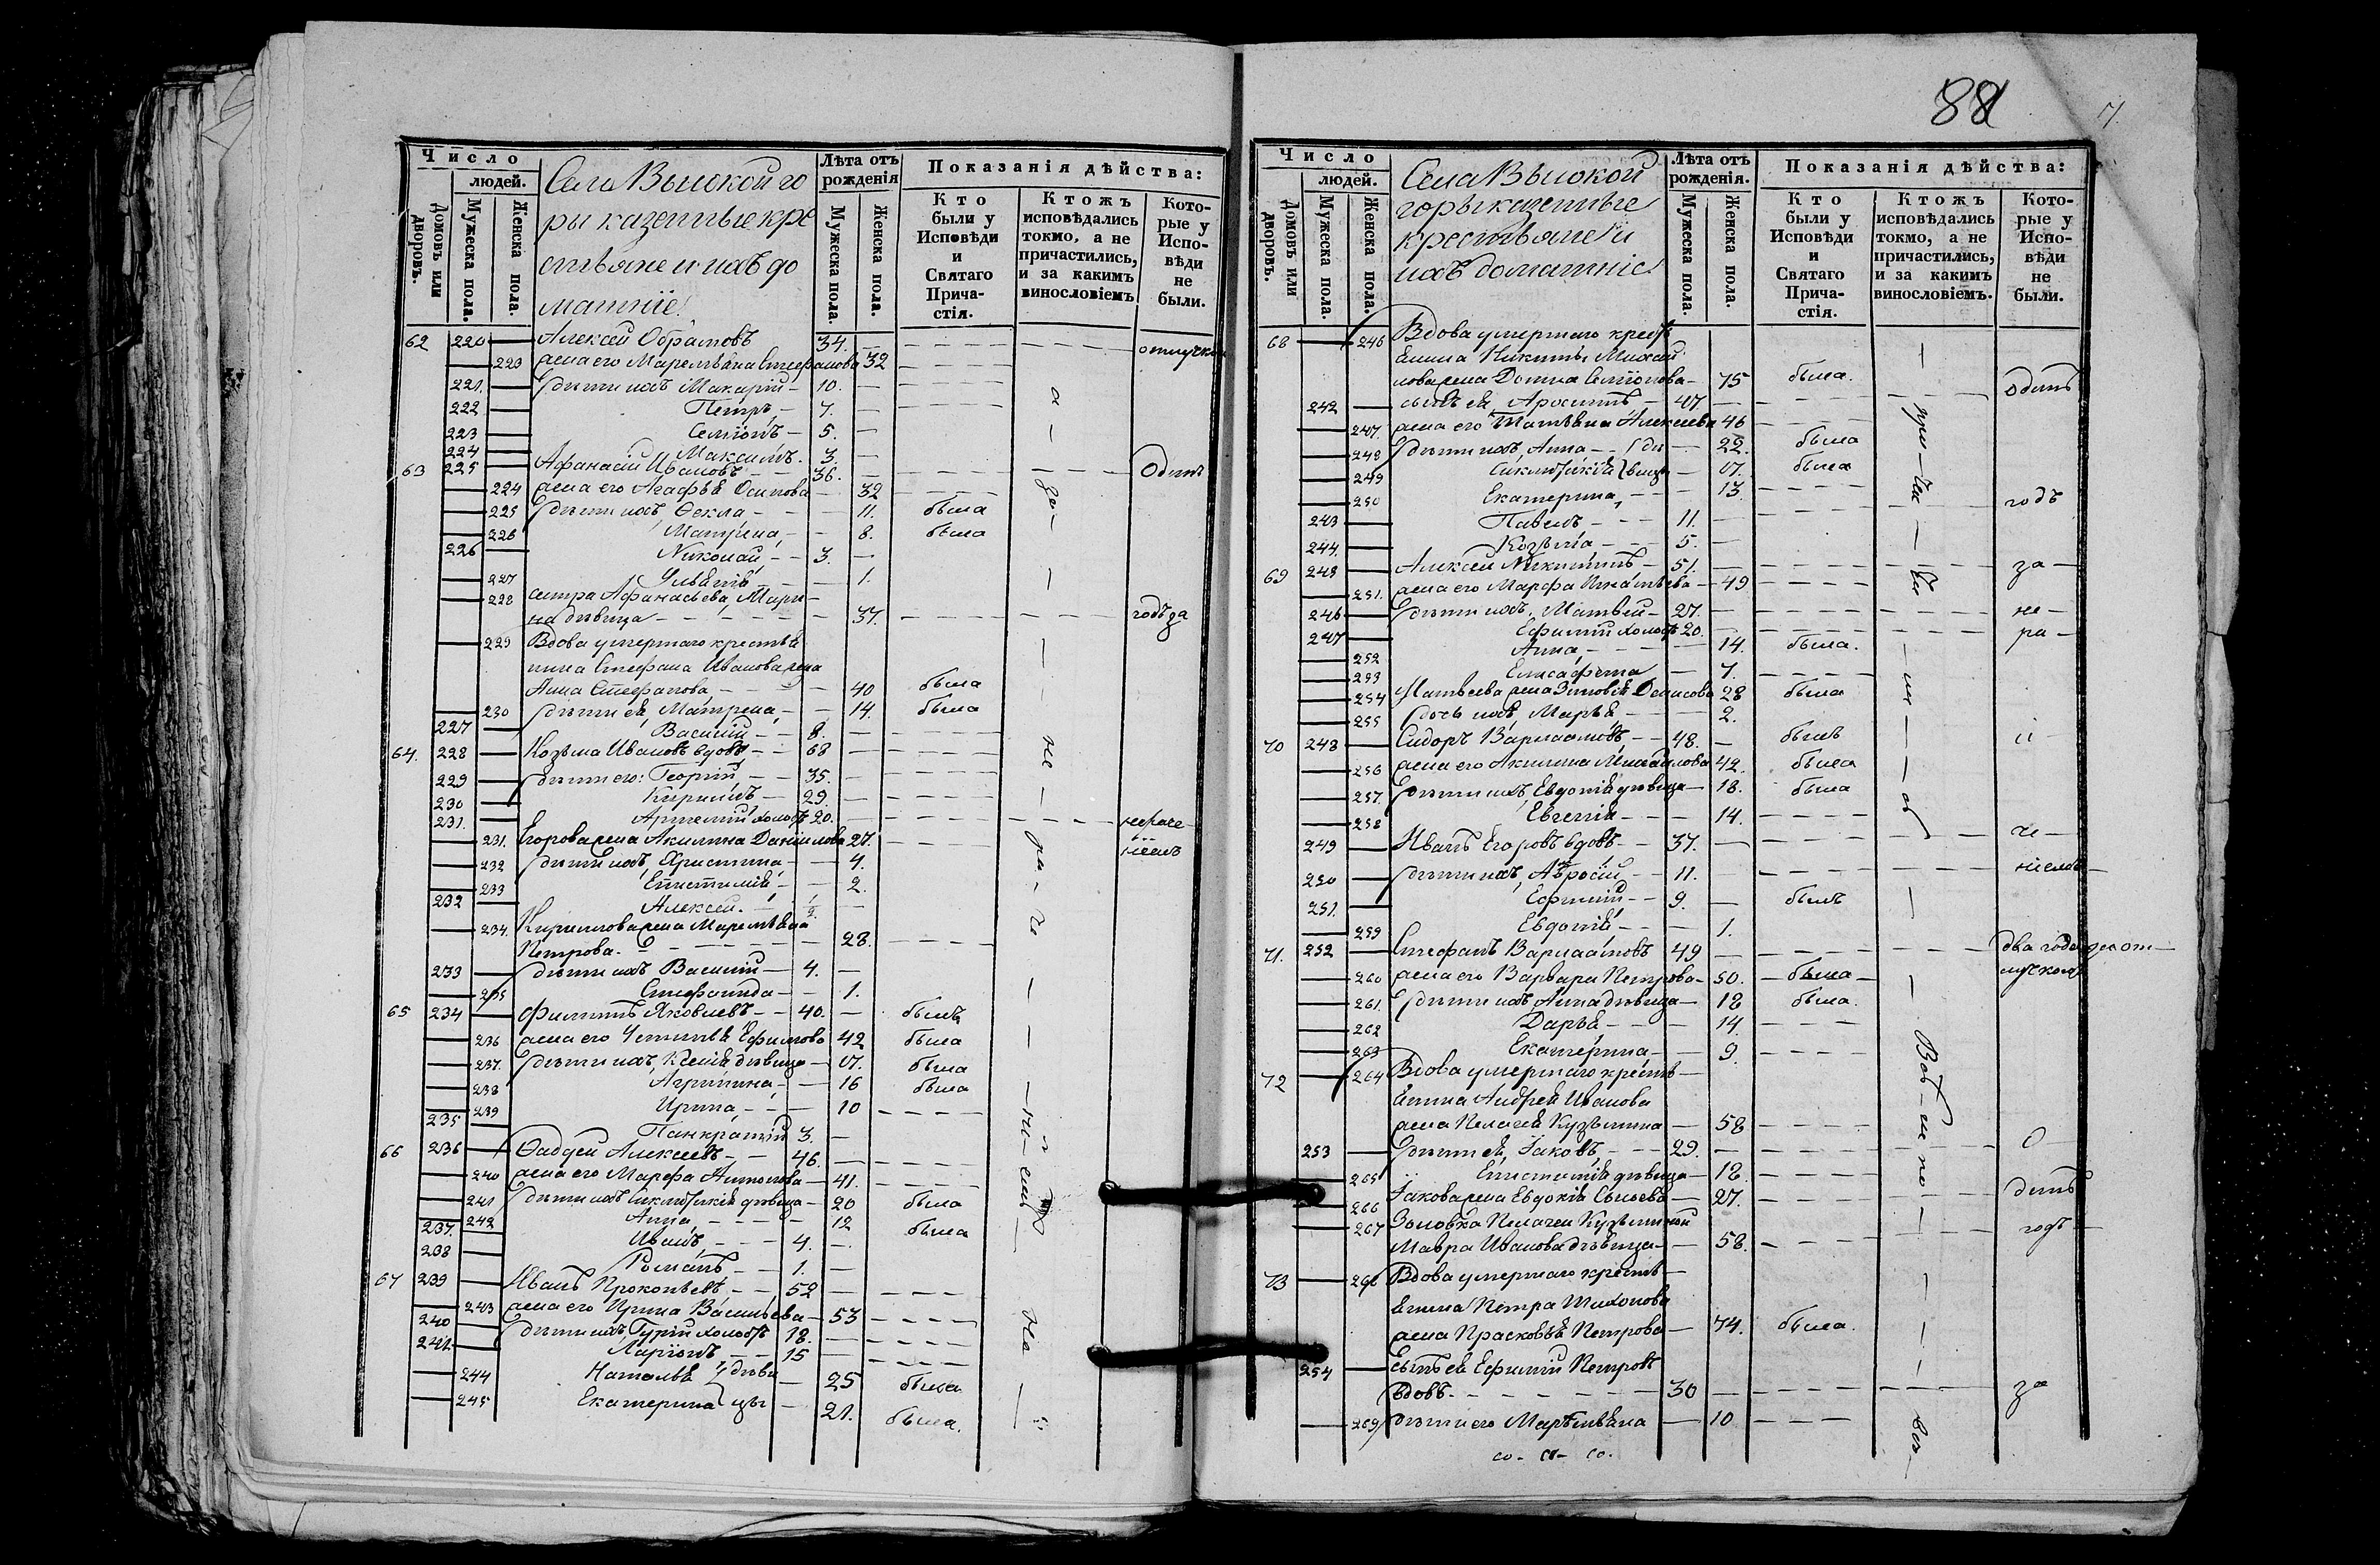 88
Число
людей.
Домовъ или дворовъ.
Мужеска пола.
Женска пола.
Села Высокой го
ры казенные кре
стьяне и ихъ до
машніе
Лѣта отъ рожденія
Мужеска пола.
Женска пола.
Показанія дѣйства:
Кто были у Исповѣди и Святаго Причастія.
Ктожъ исповѣдались токмо, а не причастились, и за какимъ винословіемъ
Которые у Исповѣди не были.
62 220 — Алексей Обрамовъ 34. —
— 223 жена его Маремьяна Стефанова 32
221. — дѣти ихъ Макарій — 10. —
222 — Петръ, — 7. —
223 — Семіонъ — 5. —
224 — Максимъ. 3. —
63 225 — Афанасій Ивановъ — 36. — Одинъ
— 224 жена его Агафья Осипова — 32
— 225 дѣти ихъ, Ѳекла — 11. была
— 226 Матрена, — 8. была
226 — Николай, — 3. —
— 227 Ульянія — 1.
— 228 сестра Афанасьева, Мари-
на дѣвица — 37. годъ за
— 229 Вдова умершаго крестья
нина Стефана Иванова жена
Анна Стефанова, — 40 была
— 230 дѣти ея, Матрена, — 14. была
227 — Василій — 8. —
64. 228 — Козьма Ивановъ вдовъ — 68 —
229 — дѣти его: Георгій, — 35. —
230 — Кирилъ — 29. —
231. — Артемій холостъ 20. —
— 231. Егорова жена Акилина Даніилова 27.
— 232 дѣти ихъ, Христина, — 4.
— 233 Епистимія, — 2.
232 — Алексей. —
— 234. Кириллова жена Маремьяна
Петрова. — 28.
233 — дѣти ихъ Василій — 4. —
— 235 Стефанида — 1.
65 234 — Филипъ Яковлевъ — 40. — былъ
— 236 жена его Устинья Ефимова 42 была
— 237. дѣти ихъ, Ксенія дѣвица — 17. была
— 238 Агрипина, — 16 была
— 239 Ирина, — 10
235 — Панкратій 3. —
66 236 — Ѳаддей Алексеевъ — 46. —
— 240 жена его Марфа Антонова — 41.
— 241 дѣти ихъ Синклитикія дѣвица — 20 была
— 242 Анна, — 12 была
237. — Иванъ, — 4. —
238 — Романъ — 1. —
67 239 — Иванъ Прокопьевъ, — 52 —
— 243 жена его Ирина Васильева — 53
240 — дѣти ихъ Гурій холостъ 18. —
241. — Ларіонъ — 15 —
— 244 Наталья дѣви — 25 была
— 245 Екатерина цы — 21. была.
Число
людей.
Домовъ или дворовъ.
Мужеска пола.
Женска пола.
Села Высокой
горы казенные
крестьяне и
ихъ домашніе
Лѣта отъ рожденія.
Мужеска пола.
Женска пола.
Показанія дѣйства:
Кто были у Исповѣди и Святаго Причастія.
Ктожъ исповѣдались токмо, а не причастились, и за какимъ винословіемъ.
Которые у Исповѣди не были.
68 — 246 Вдова умершаго кресть
янина Никиты Михай
лова жена Домна Семіонова — 75 была. одинъ
242 — сынъ ея — 47 —
— 247. жена его Татьяна Алексеева 46
— 248 дѣти ихъ, Анна — дѣ — 22. была
— 249 Синклитикія вицы — 17. была
— 250 Екатерина, — 13. годъ
243 — Павелъ — 11. —
244. — Козьма — 5. —
69 245 — Алексей Никитинъ — 51. — за —
— 251. жена его Марфа Игнатьева — 49
246 — дѣти ихъ, Матвей — 27. — не —
247 — Ефимій холостъ 20. — ра —
— 252 Анна, — 14. была.
— 253 Елисафета — 7.
— 254 Матвеева жена Зиновія Денисова 28 была
— 255 дочь ихъ, Марья — 2.
70 248 — Сидоръ Варлаамовъ, — 48. — былъ
— 256 жена его Акилина Михайлова 42. была
— 257. дѣти ихъ, Евдокія дѣвица — 18. была
— 258 Евгенія — 14.
249 — Иванъ Егоровъ вдовъ — 37. —
250 — дѣти ихъ, — 11. ніемъ —
251. — Ефимій — 9. — былъ
— 259 Евдокія — 1.
71. 252 — Стефанъ Варлаамовъ 49 — два года
— 260 жена его Варвара Петрова — 50. была
— 261. дѣти ихъ Анна дѣвица — 18 была.
— 262 Дарья — 14.
— 263 Екатерина, — 9.
72 — 264 Вдова умершаго кресть —
янина Андрея Иванова
жена Пелагея Кузьмина — 58
253 — дѣти ея, Іаковъ, — 29. — О
— 265 Епистимія дѣвица — 18. —
— 266 Іакова жена Евдокія — 27. динъ
— 267 Золовка Пелагеи Кузьминой
Мавра Иванова дѣвица — 58. годъ
73 — 268 Вдова умершаго кресть —
янина Петра Тихонова
жена Прасковья Петрова — 74. была.
254 — сынъ ея Ефимій Петровъ
вдовъ. — 30 — за
— 269 дѣти его Маремьяна — 10